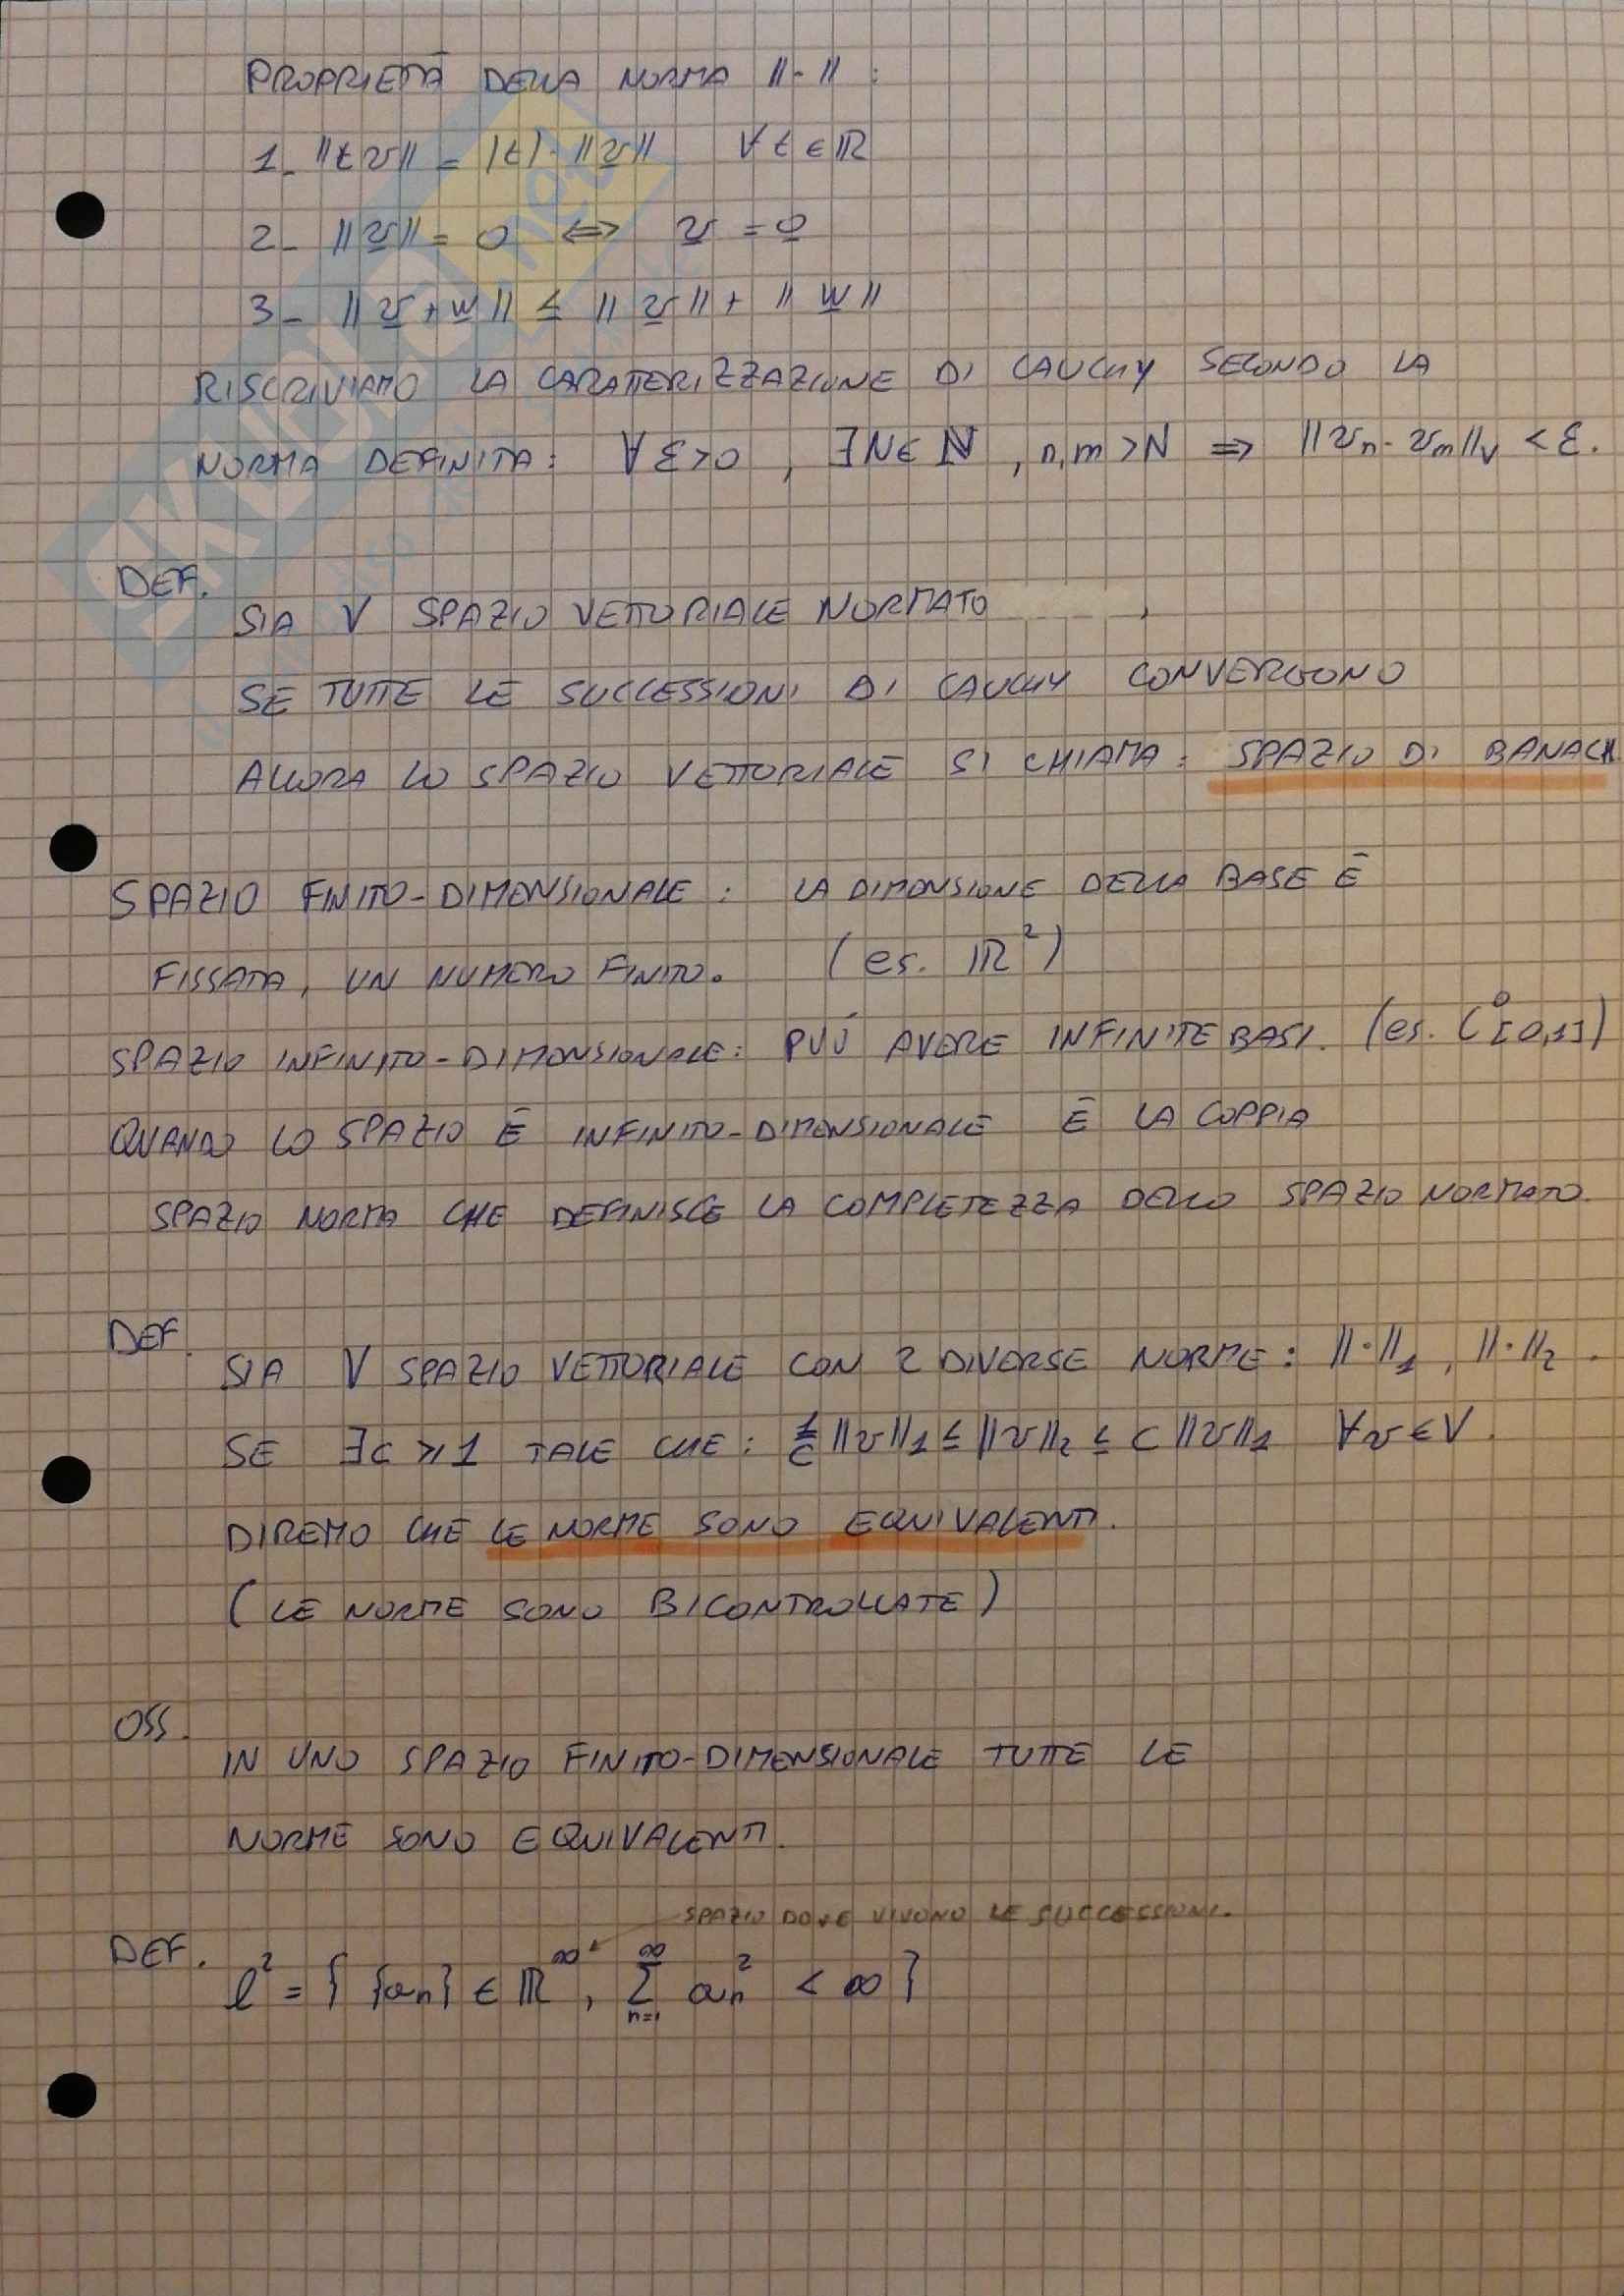 PROPRIETĀ DELLA NORMA ||·|| :
1- ||t v|| = |t|·||v|| ∀ t ∈ ℝ
2- ||v|| = 0 ⇔ v = 0
3- ||v + w|| ≤ ||v|| + ||w||
RISCRIVIAMO LA CARATTERIZZAZIONE DI CAUCHY SECONDO LA
NORMA DEFINITA: ∀ ε>0 , ∃N∈ ℕ , n,m >N ⇒ ||vn - vm||V < ε.
DEF.
SIA V SPAZIO VETTORIALE NORMATO ,
SE TUTTE LE SUCCESSIONI DI CAUCHY CONVERGONO
ALLORA LO SPAZIO VETTORIALE SI CHIAMA: SPAZIO DI BANACH
SPAZIO FINITO-DIMENSIONALE: LA DIMENSIONE DELLA BASE Ē
FISSATA, UN NUMERO FINITO. (es. ℝ²)
SPAZIO INFINITO-DIMENSIONALE: PUÓ AVERE INFINITE BASI. (es. C⁰[0,1])
QUANDO LO SPAZIO Ē INFINITO-DIMENSIONALE Ē LA COPPIA
SPAZIO NORMA CHE DEFINISCE LA COMPLETEZZA DELLO SPAZIO NORMATO.
DEF.
SIA V SPAZIO VETTORIALE CON 2 DIVERSE NORME: ||·||₁ , ||·||₂ .
SE ∃c ≥ 1 TALE CHE: 1/C ||v||₁ ≤ ||v||₂ ≤ C ||v||₁ ∀v ∈ V.
DIREMO CHE LE NORME SONO EQUIVALENTI.
(LE NORME SONO BICONTROLLATE)
OSS.
IN UNO SPAZIO FINITO-DIMENSIONALE TUTTE LE
NORME SONO EQUIVALENTI.
SPAZIO DOVE VIVONO LE SUCCESSIONI.
DEF.
ℓ² = { {an} ∈ ℝ^∞ , ∑_{n=1}^∞ an² < ∞ }